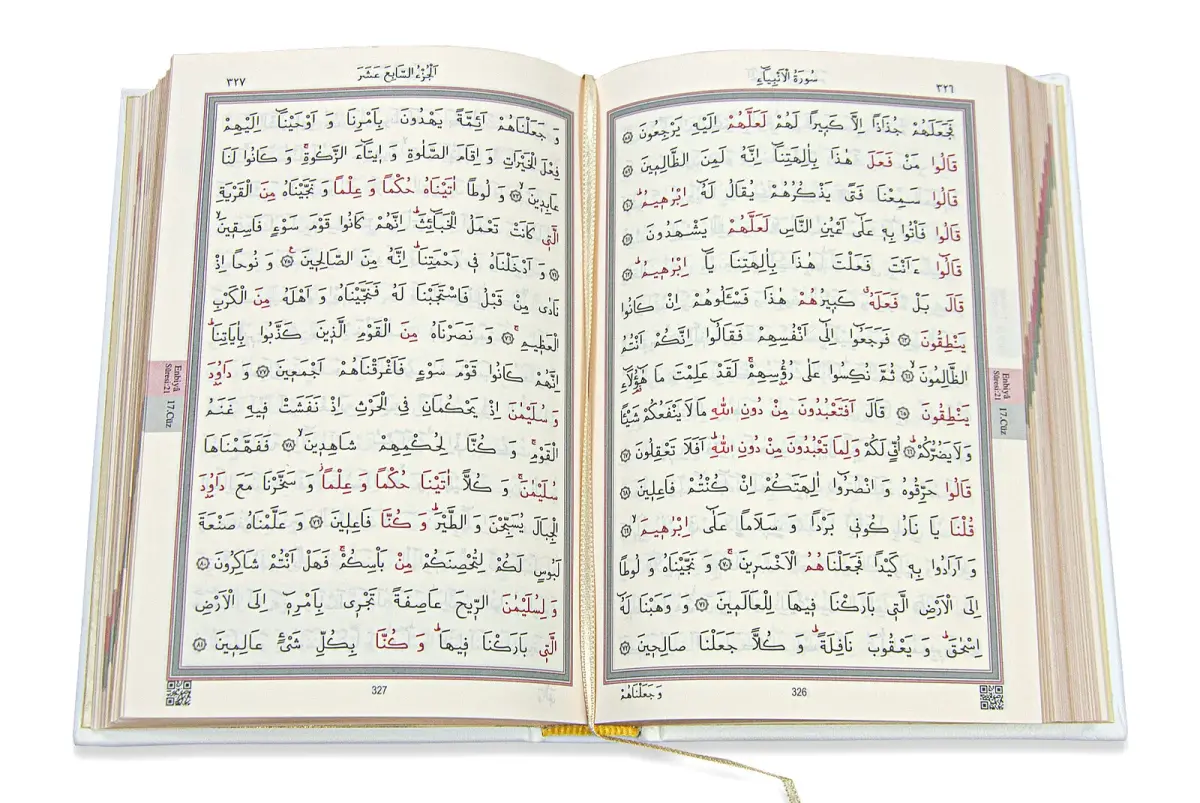 سُورَةُ الْاَنْبِيَاءِ
٣٢٦
فَجَعَلَهُمْ جُذَاذًا اِلَّا كَبٖيرًا لَهُمْ لَعَلَّهُمْ اِلَيْهِ يَرْجِعُونَ ﴿٥٨﴾
قَالُوا مَنْ فَعَلَ هٰذَا بِاٰلِهَتِنَٓا اِنَّهُ لَمِنَ الظَّالِمٖينَ ﴿٥٩﴾
قَالُوا سَمِعْنَا فَتًى يَذْكُرُهُمْ يُقَالُ لَهُٓ اِبْرٰهٖيمُؕ ﴿٦٠﴾
قَالُوا فَأْتُوا بِهٖ عَلٰٓى اَعْيُنِ النَّاسِ لَعَلَّهُمْ يَشْهَدُونَ ﴿٦١﴾
قَالُٓوا ءَاَنْتَ فَعَلْتَ هٰذَا بِاٰلِهَتِنَا يَٓا اِبْرٰهٖيمُؕ ﴿٦٢﴾
قَالَ بَلْ فَعَلَهُࣗ كَبٖيرُهُمْ هٰذَا فَسْـَٔلُوهُمْ اِنْ كَانُوا
يَنْطِقُونَ ﴿٦٣﴾ فَرَجَعُٓوا اِلٰٓى اَنْفُسِهِمْ فَقَالُٓوا اِنَّكُمْ اَنْتُمُ
الظَّالِمُونَۙ ﴿٦٤﴾ ثُمَّ نُكِسُوا عَلٰى رُؤُ۫سِهِمْۚ لَقَدْ عَلِمْتَ مَا هٰٓؤُ۬لَٓاءِ
يَنْطِقُونَ ﴿٦٥﴾ قَالَ اَفَتَعْبُدُونَ مِنْ دُونِ اللّٰهِ مَا لَا يَنْفَعُكُمْ شَيْـًٔا
وَلَا يَضُرُّكُمْؕ ﴿٦٦﴾ اُفٍّ لَكُمْ وَلِمَا تَعْبُدُونَ مِنْ دُونِ اللّٰهِؕ اَفَلَا تَعْقِلُونَ ﴿٦٧﴾
قَالُوا حَرِّقُوهُ وَ انْصُرُٓوا اٰلِهَتَكُمْ اِنْ كُنْتُمْ فَاعِلٖينَ ﴿٦٨﴾
قُلْنَا يَا نَارُ كُونٖى بَرْدًا وَ سَلَامًا عَلٰٓى اِبْرٰهٖيمَۙ ﴿٦٩﴾
وَ اَرَادُوا بِهٖ كَيْدًا فَجَعَلْنَاهُمُ الْاَخْسَرٖينَۚ ﴿٧٠﴾ وَ نَجَّيْنَاهُ وَ لُوطًا
اِلَى الْاَرْضِ الَّتٖى بَارَكْنَا فٖيهَا لِلْعَالَمٖينَ ﴿٧١﴾ وَ وَهَبْنَا لَهُٓ
اِسْحٰقَؕ وَ يَعْقُوبَ نَافِلَةًؕ وَ كُلًّا جَعَلْنَا صَالِحٖينَ ﴿٧٢﴾
وَجَعَلْنَاهُمْ
326
Enbiyâ
Sûresi:21
17.Cüz
اَلْجُزْءُ السَّابِعَ عَشَرَ
٣٢٧
وَ جَعَلْنَاهُمْ اَئِمَّةً يَهْدُونَ بِاَمْرِنَا وَ اَوْحَيْنَٓا اِلَيْهِمْ
فِعْلَ الْخَيْرَاتِ وَ اِقَامَ الصَّلٰوةِ وَ اٖيتَٓاءَ الزَّكٰوةِۚ وَ كَانُوا لَنَا
عَابِدٖينَۙ ﴿٧٣﴾ وَ لُوطًا اٰتَيْنَاهُ حُكْمًا وَ عِلْمًا وَ نَجَّيْنَاهُ مِنَ الْقَرْيَةِ
الَّتٖى كَانَتْ تَعْمَلُ الْخَبَٓائِثَؕ اِنَّهُمْ كَانُوا قَوْمَ سَوْءٍ فَاسِقٖينَۙ
﴿٧٤﴾ وَ اَدْخَلْنَاهُ فٖى رَحْمَتِنَاؕ اِنَّهُ مِنَ الصَّالِحٖينَ۟ ﴿٧٥﴾ وَ نُوحًا اِذْ
نَادٰى مِنْ قَبْلُ فَاسْتَجَبْنَا لَهُ فَنَجَّيْنَاهُ وَ اَهْلَهُ مِنَ الْكَرْبِ
الْعَظٖيمِۚ ﴿٧٦﴾ وَ نَصَرْنَاهُ مِنَ الْقَوْمِ الَّذٖينَ كَذَّبُوا بِاٰيَاتِنَاؕ
اِنَّهُمْ كَانُوا قَوْمَ سَوْءٍ فَاَغْرَقْنَاهُمْ اَجْمَعٖينَ ﴿٧٧﴾ وَ دَاوُ۫دَ
وَ سُلَيْمٰنَ اِذْ يَحْكُمَانِ فِى الْحَرْثِ اِذْ نَفَشَتْ فٖيهِ غَنَمُ
الْقَوْمِۚ وَ كُنَّا لِحُكْمِهِمْ شَاهِدٖينَۙ ﴿٧٨﴾ فَفَهَّمْنَاهَا
سُلَيْمٰنَۚ وَ كُلًّا اٰتَيْنَا حُكْمًا وَ عِلْمًاؗ وَ سَخَّرْنَا مَعَ دَاوُ۫دَ
الْجِبَالَ يُسَبِّحْنَ وَ الطَّيْرَؕ وَ كُنَّا فَاعِلٖينَ ﴿٧٩﴾ وَ عَلَّمْنَاهُ صَنْعَةَ
لَبُوسٍ لَكُمْ لِتُحْصِنَكُمْ مِنْ بَأْسِكُمْۚ فَهَلْ اَنْتُمْ شَاكِرُونَ ﴿٨٠﴾
وَ لِسُلَيْمٰنَ الرّٖيحَ عَاصِفَةً تَجْرٖى بِاَمْرِهٖٓ اِلَى الْاَرْضِ
الَّتٖى بَارَكْنَا فٖيهَاؕ وَ كُنَّا بِكُلِّ شَىْءٍ عَالِمٖينَ ﴿٨١﴾
327
Enbiyâ
Sûresi:21
17.Cüz